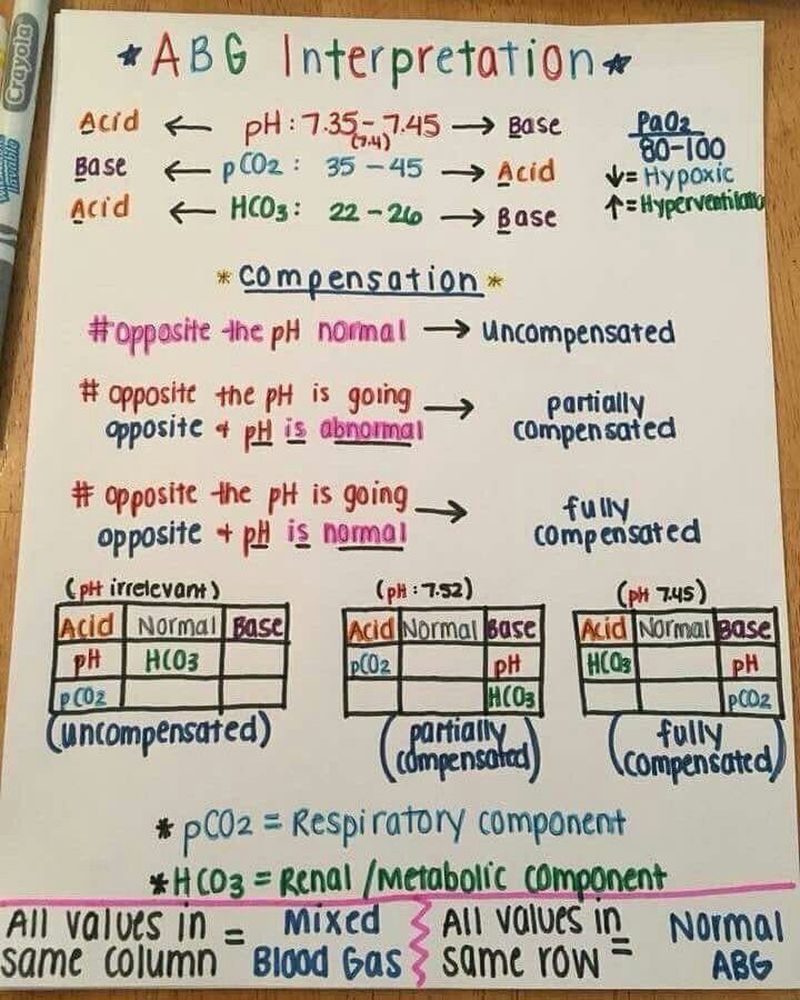 Crayola
★ ABG Interpretation ★
Acid ← pH: 7.35-7.45 → Base
(7.4)
Base ← pCO2: 35-45 → Acid
Acid ← HCO3: 22-26 → Base
PaO2
80-100
↓= Hypoxic
↑= Hyperventilation
* Compensation *
# opposite the pH normal → uncompensated
# opposite the pH is going
opposite + pH is abnormal → partially
compensated
# opposite the pH is going
opposite + pH is normal → fully
compensated
(pH irrelevant)
Acid Normal Base
pH HCO3
pCO2
(uncompensated)
(pH: 7.52)
Acid Normal Base
pCO2 pH
HCO3
(partially
compensated)
(pH 7.45)
Acid Normal Base
HCO3 pH
pCO2
(fully
compensated)
* pCO2 = Respiratory component
* HCO3 = Renal/Metabolic component
All values in
same column = Mixed
Blood Gas
All values in
same row = Normal
ABG